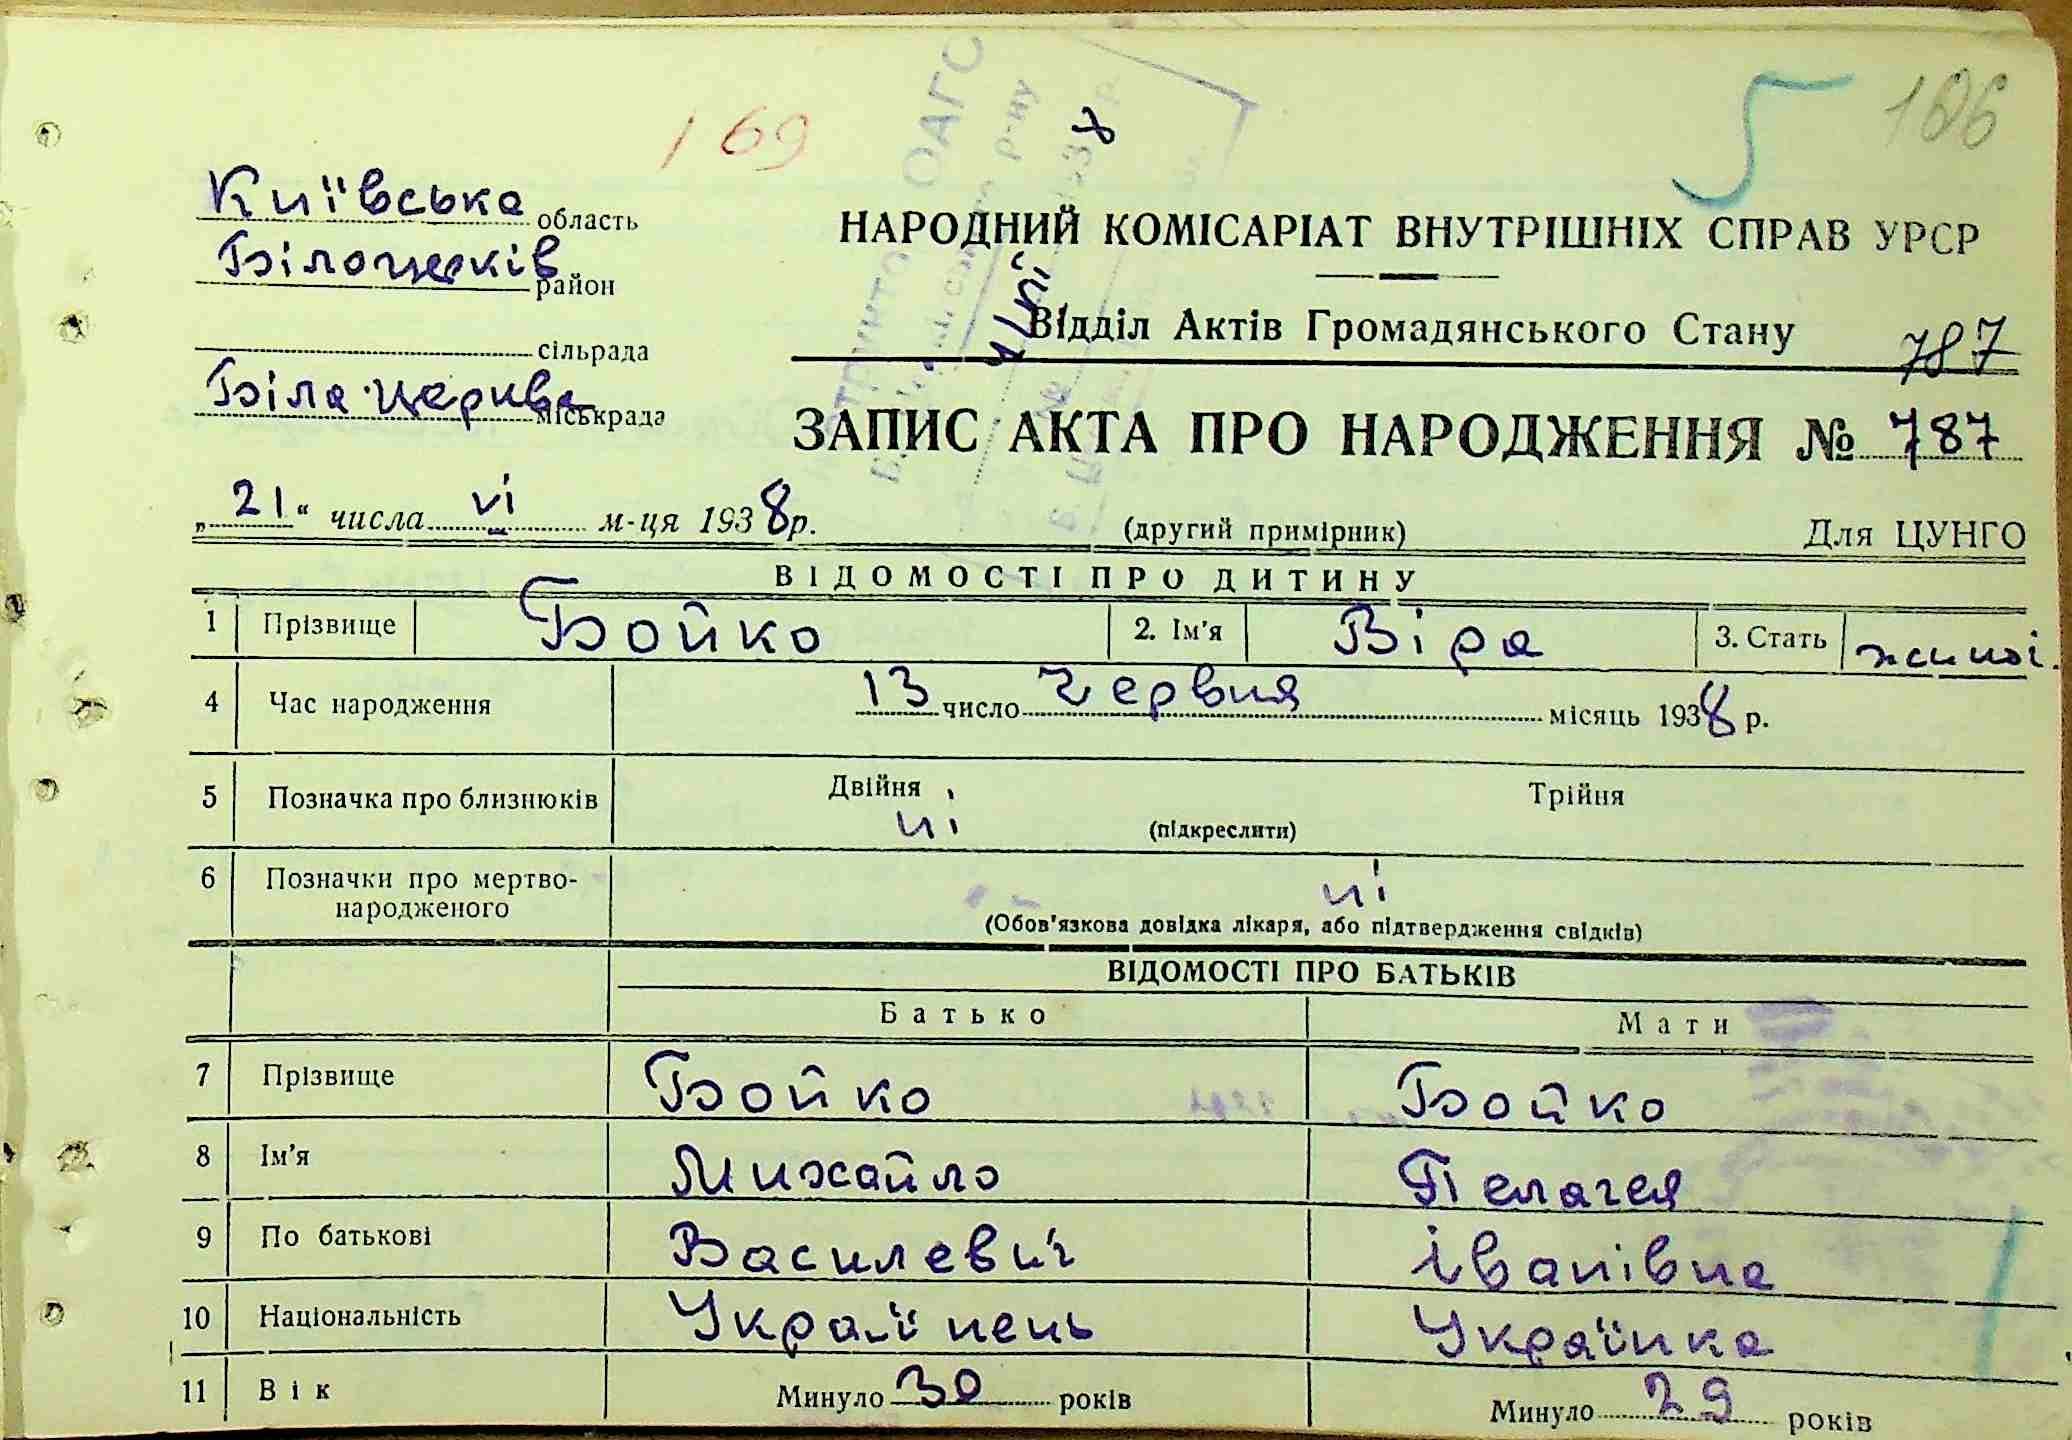 169
5 106
Київська область
Білоцерків район
сільрада
Біла-Церква міськрада
НАРОДНИЙ КОМІСАРІАТ ВНУТРІШНІХ СПРАВ УРСР
Відділ Актів Громадянського Стану 787
ЗАПИС АКТА ПРО НАРОДЖЕННЯ № 787
„21“ числа VI м-ця 1938 р. (другий примірник) Для ЦУНГО
ВІДОМОСТІ ПРО ДИТИНУ
1 Прізвище Бойко 2. Ім'я Віра 3. Стать жиноі.
4 Час народження 13 число Червня місяць 1938 р.
5 Позначка про близнюків Двійня Трійня
ні (підкреслити)
6 Позначки про мертво-
народженого ні
(Обов'язкова довідка лікаря, або підтвердження свідків)
ВІДОМОСТІ ПРО БАТЬКІВ
Батько Мати
7 Прізвище Бойко Бойко
8 Ім'я Михайло Пелагея
9 По батькові Василевич Іванівна
10 Національність Українець Українка
11 Вік Минуло 30 років Минуло 29 років